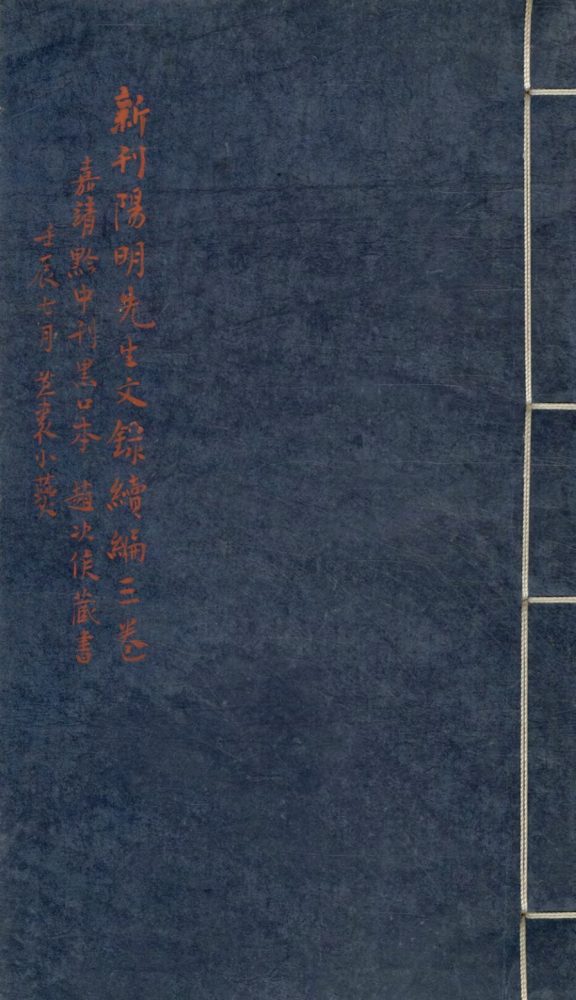 新刊陽明先生文錄續編三卷
嘉靖黔中刊黑口本 趙次侯藏書
壬辰七月 芷裳小燕